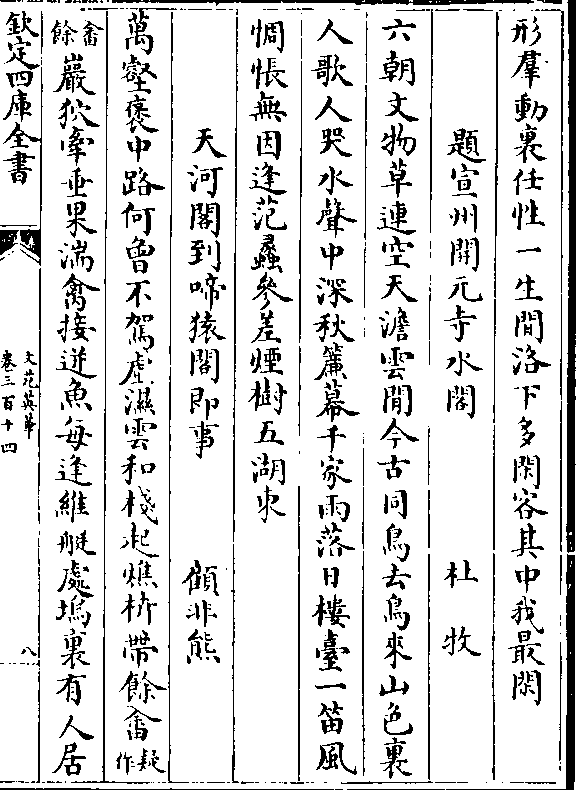 形羣動裏任性一生閒洛下多閑客其中我最閑
題宣州開元寺水閣
杜牧
六朝文物草連空天澹雲閒今古同鳥去鳥來山色裏
人歌人哭水聲中深秋簾幕千家雨落日樓臺一笛風
惆悵無因逢范蠡參差煙樹五湖東
天河閣到啼猿閣即事
顧非熊
萬壑褒中路何曾不架虛濕雲和棧起燋枿帶餘畬疑作
畬餘巖狖牽垂果湍禽接迸魚每逢維艇處塢裏有人居
欽定四庫全書
文苑英華
卷三百十四
八